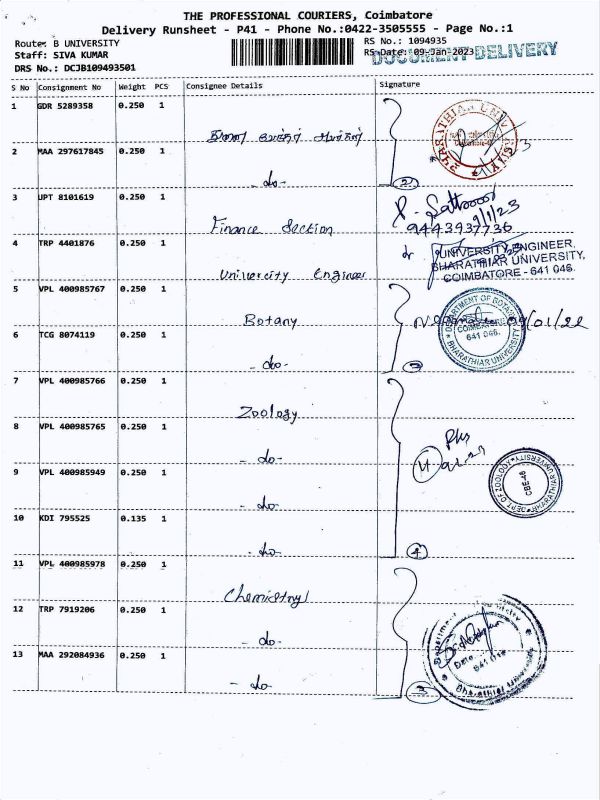 THE PROFESSIONAL COURIERS, Coimbatore
Delivery Runsheet - P41 - Phone No.:0422-3505555 - Page No.:1
Route: B UNIVERSITY
RS No.: 1094935
Staff: SIVA KUMAR
RS Date: 09-Jan-2023
DOCUMENT DELIVERY
DRS No.: DCJB109493501
S No Consignment No Weight PCS Consignee Details Signature
1 GDR 5289358 0.250 1
2 MAA 297617845 0.250 1
- do -
2
3 JPT 8101619 0.250 1
Finance Section
9/1/23
9443937736
4 TRP 4401876 0.250 1
University Engineer
UNIVERSITY ENGINEER,
BHARATHIAR UNIVERSITY,
COIMBATORE - 641 046.
5 VPL 400985767 0.250 1
Botany
09/01/22
DEPARTMENT OF BOTANY
COIMBATORE
641 046.
BHARATHIAR UNIVERSITY
6 TCG 8074119 0.250 1
- do -
7 VPL 400985766 0.250 1
Zoology
8 VPL 400985765 0.250 1
- do -
9 VPL 400985949 0.250 1
- do -
DEPT. OF ZOOLOGY
BHARATHIAR UNIVERSITY
CBE-46
10 KDI 795525 0.135 1
- do -
4
11 VPL 400985978 0.250 1
Chemistry
12 TRP 7919206 0.250 1
- do -
Department
Date
641 046
Bharathiar University
13 MAA 292084936 0.250 1
- do -
3